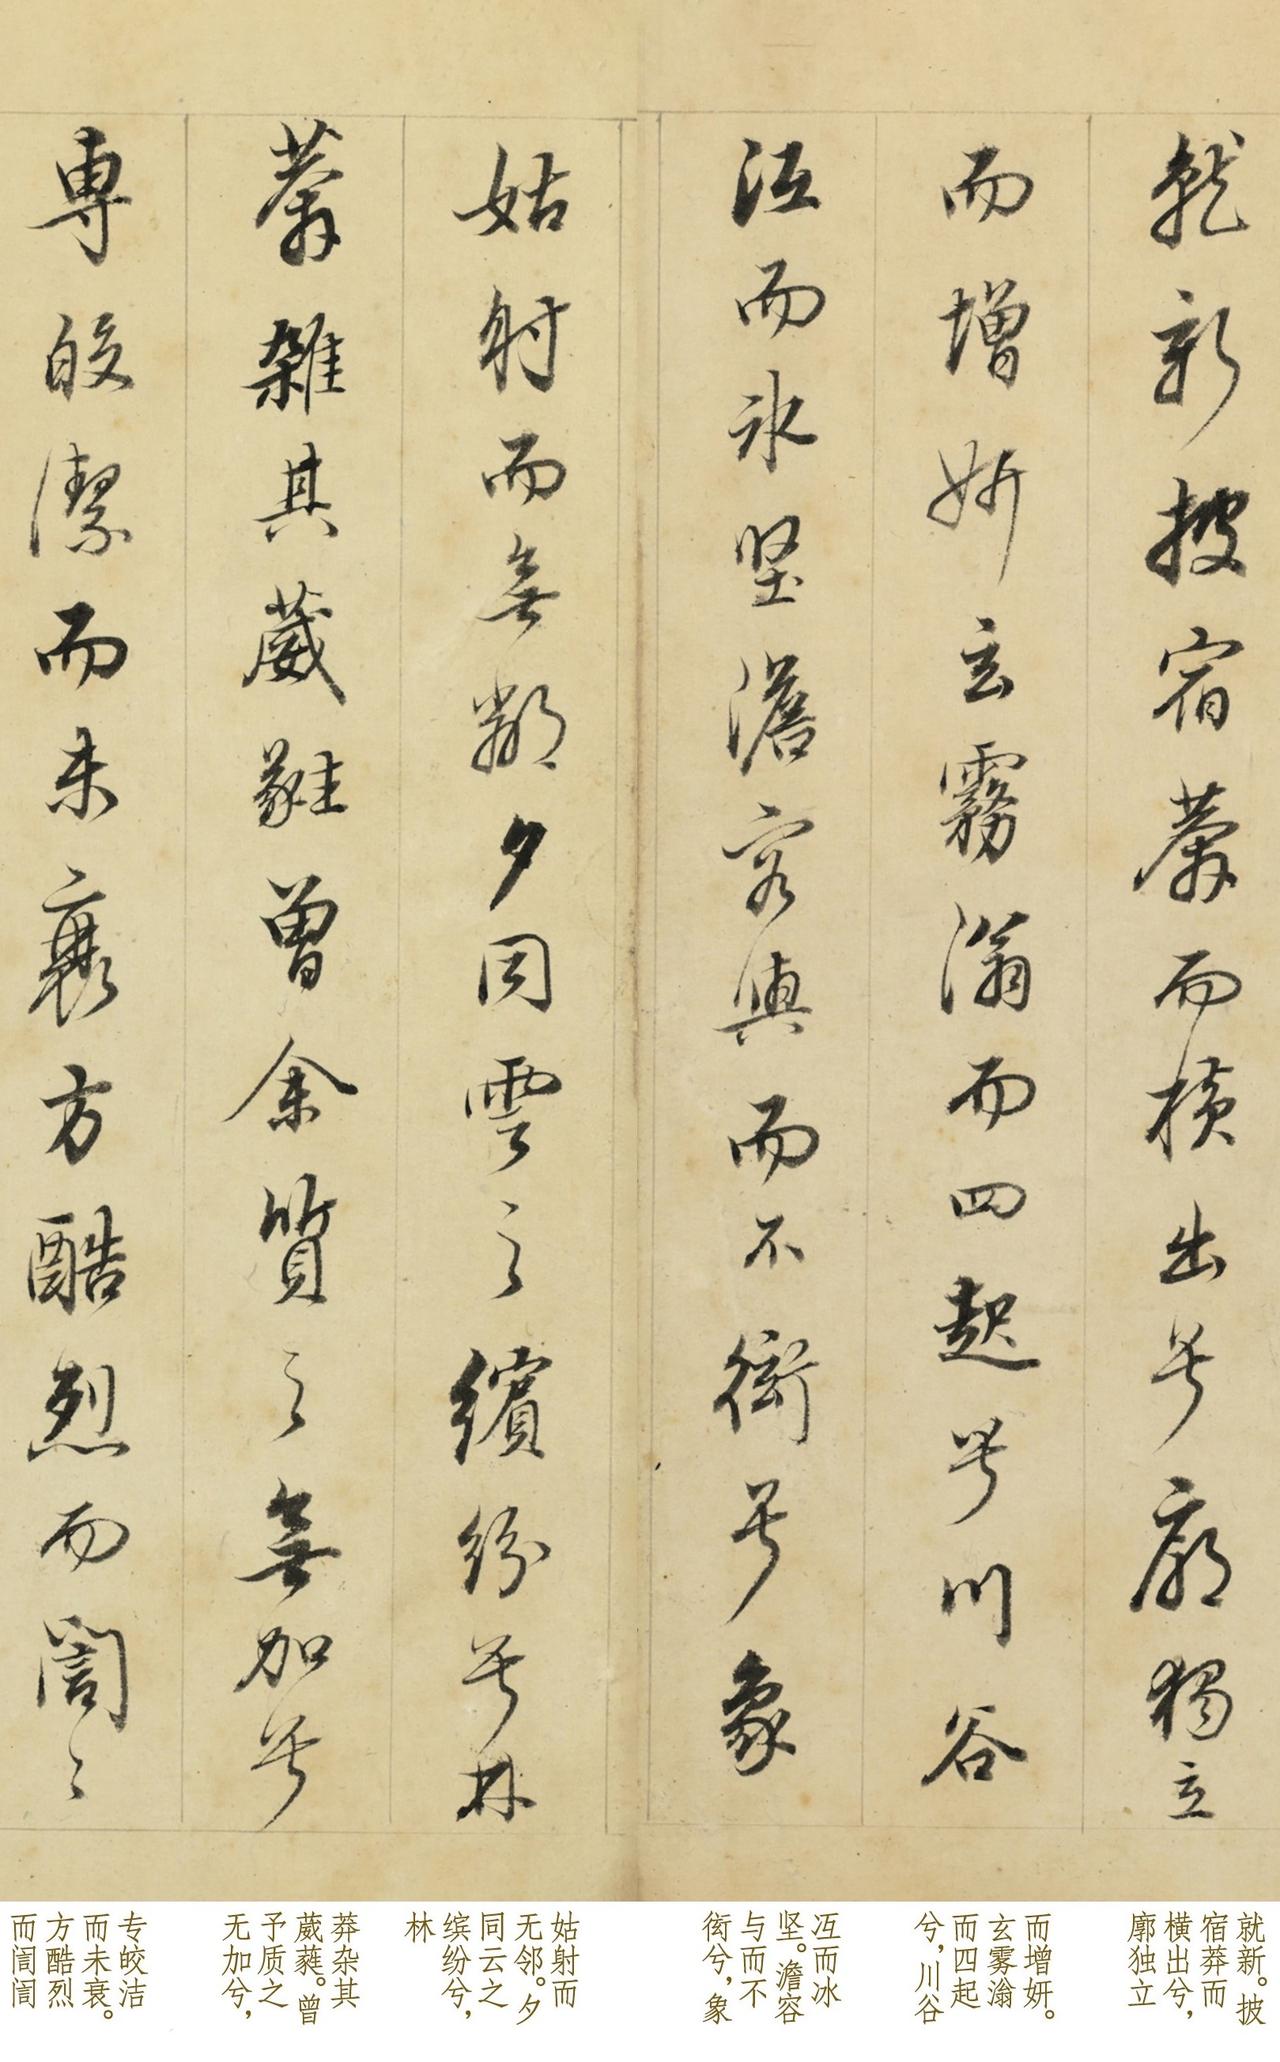 就新披宿莽而橫出兮廓獨立
而增妍玄霧滃而四起兮川谷
沍而氷堅澹容與而不衒兮象
姑射而無鄰夕同雲之繽紛兮林
莽雜其葳蕤曾余質之無加兮
專皎潔而未衰方酷烈而誾〻
就新。披
宿莽而
橫出兮，
廓独立
而增妍。
玄雾滃
而四起
兮，川谷
冱而冰
坚。澹容
与而不
衒兮，象
姑射而
无邻。夕
同云之
缤纷兮，
林
莽杂其
葳蕤。曾
予质之
无加兮，
专皎洁
而未衰。
方酷烈
而訚訚